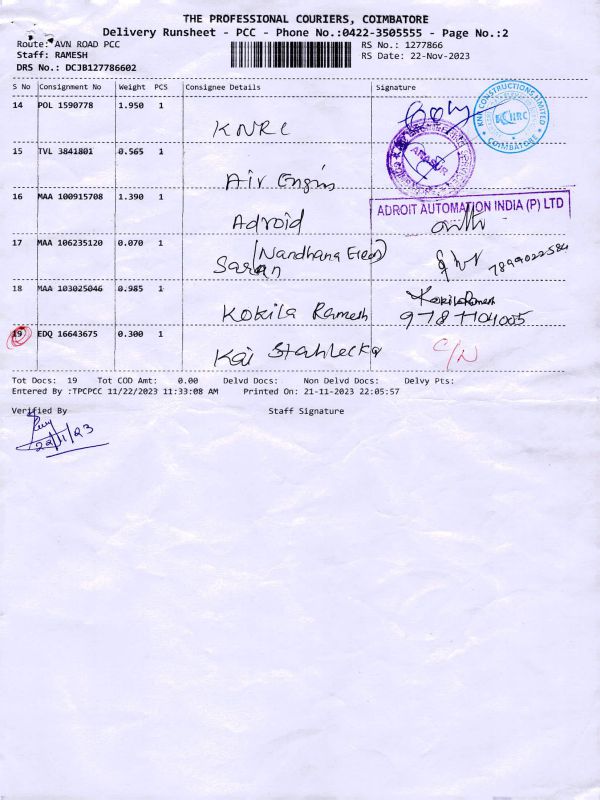 THE PROFESSIONAL COURIERS, COIMBATORE
Delivery Runsheet - PCC - Phone No.:0422-3505555 - Page No.:2
Route: AVN ROAD PCC
RS No.: 1277866
Staff: RAMESH
RS Date: 22-Nov-2023
DRS No.: DCJB127786602
S No Consignment No Weight PCS Consignee Details Signature
14 POL 1590778 1.950 1
KNRC
KNR CONSTRUCTIONS LIMITED
KNRC
COIMBATORE
15 TVL 3841801 0.565 1
Air Engin
16 MAA 100915708 1.390 1
Adroid
ADROIT AUTOMATION INDIA (P) LTD
17 MAA 106235120 0.070 1
(Nandhana
Saran
7899022584
18 MAA 103025046 0.985 1
Kokila Ramesh
Kokila Ramesh
9787104005
19 EDQ 16643675 0.300 1
Kai Stahlecka
C/N
Tot Docs: 19 Tot COD Amt: 0.00 Delvd Docs: Non Delvd Docs: Delvy Pts:
Entered By :TPCPCC 11/22/2023 11:33:08 AM Printed On: 21-11-2023 22:05:57
Verified By Staff Signature
22/11/23